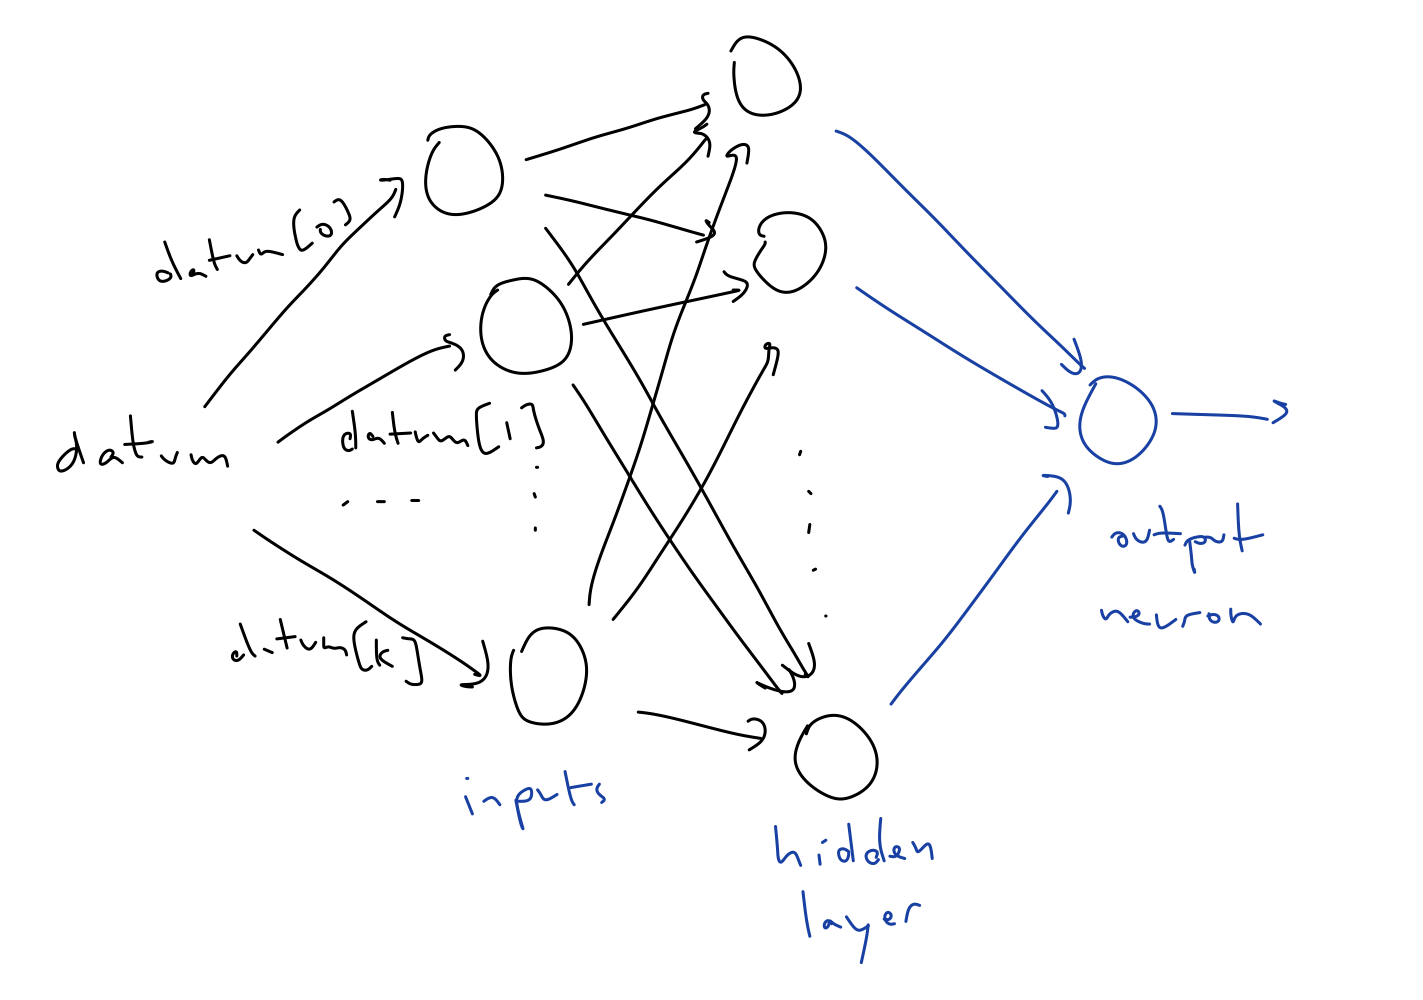 datum[0]
datum
datum[1]
datum[k]
inputs
hidden
layer
output
neuron